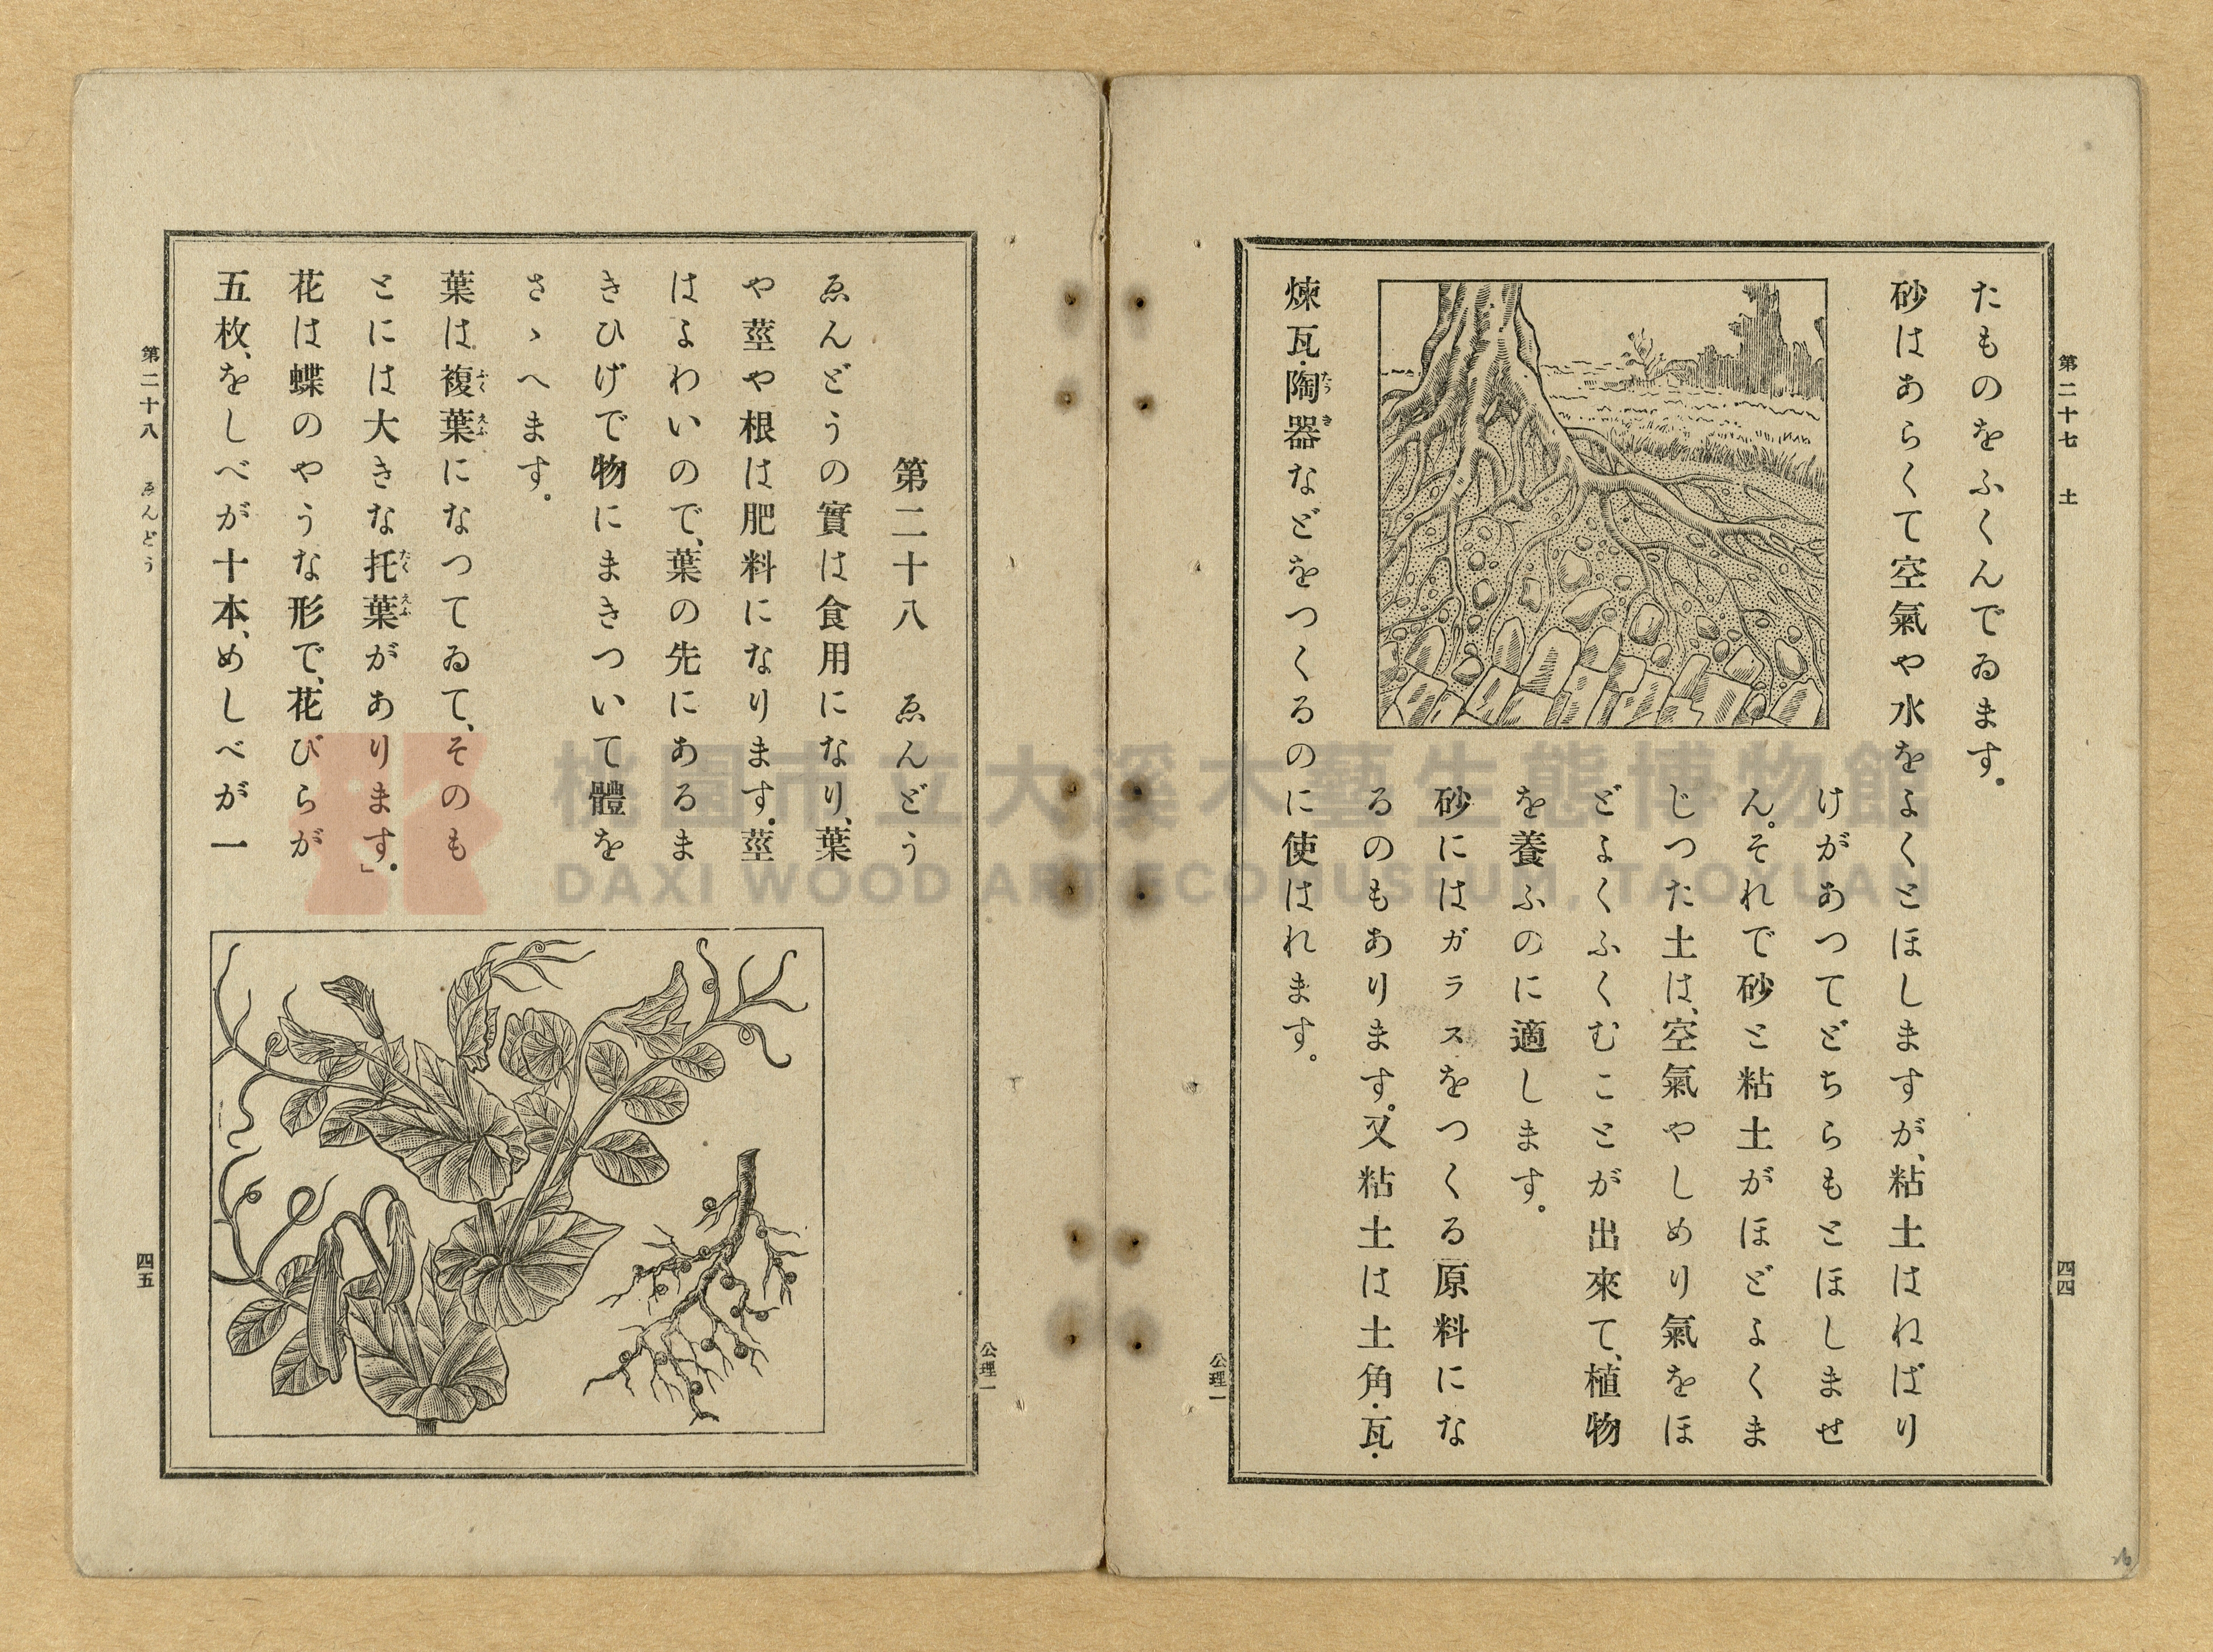 第二十七 土
四四
たものをふくんでゐます。
砂はあらくて空氣や水をよくとほしますが、粘土はねばり
けがあつてどちらもとほしませ
ん。それで砂と粘土がほどよくま
じつた土は、空氣やしめり氣をほ
どよくふくむことが出來て、植物
を養ふのに適します。
砂にはガラスをつくる原料にな
るのもあります。又粘土は土角・瓦・
煉瓦・陶器などをつくるのに使はれます。
たうき
公理一
公理一
第二十八 ゑんどう
ゑんどうの實は食用になり、葉
や莖や根は肥料になります。莖
はよわいので、葉の先にあるま
きひげで物にまきついて體を
さゝへます。
葉は複葉になつてゐて、そのも
ふくえふ
とには大きな托葉があります。」
たくえふ
花は蝶のやうな形で、花びらが
五枚、をしべが十本、めしべが一
第二十八 ゑんどう
四五
桃園市立大溪木藝生態博物館
DAXI WOOD ART ECOMUSEUM, TAOYUAN